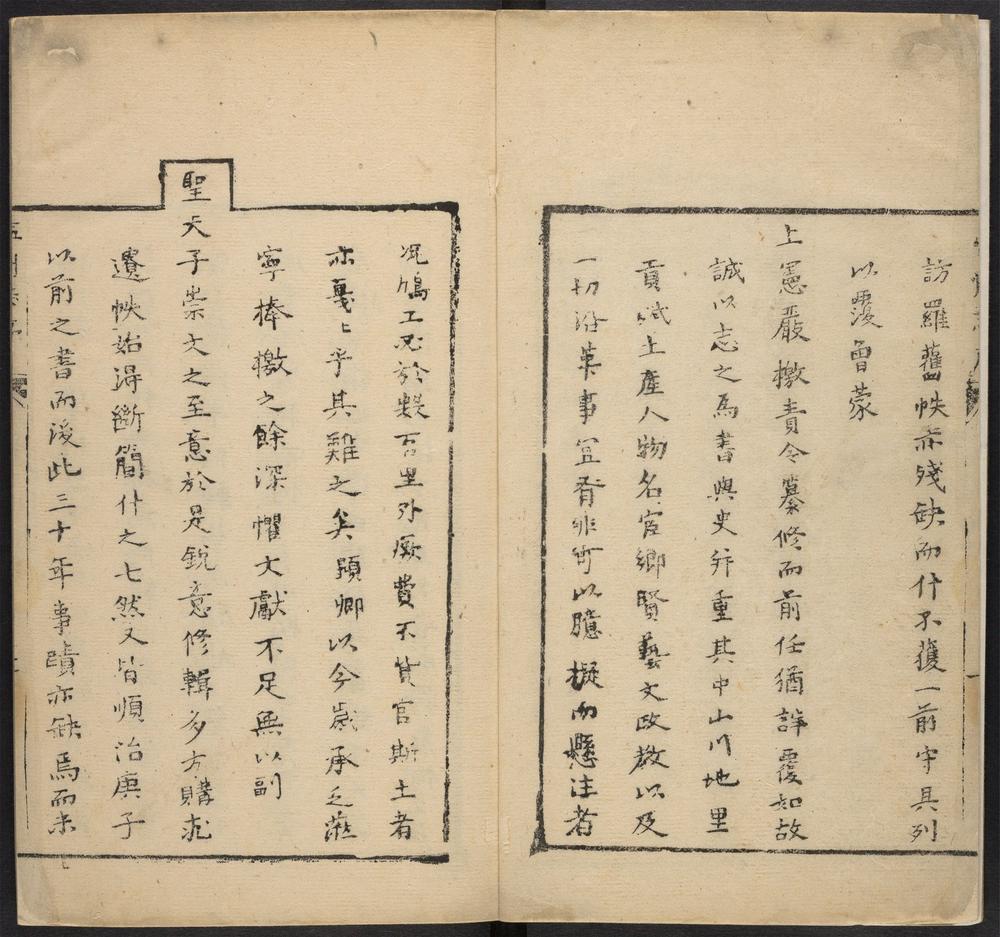 訪羅舊帙亦殘缺而什不獲一前守具列
以覆曾蒙
上憲嚴檄責令纂修而前任猶詳覆如故
誠以志之為書與史并重其中山川地里
貢賦土產人物名宦鄉賢藝文政教以及
一切沿革事宜胥非可以臆擬而懸注者
況鳩工又於數百里外厥費不貲官斯土者
亦戛戛乎其難之矣顕卿以今歲承乏蒞
寧捧檄之餘深懼文獻不足無以副
聖天子崇文之至意於是銳意修輯多方購求
遺帙始得斷簡什之七然又皆順治庚子
以前之書而後此三十年事蹟亦缺焉而未